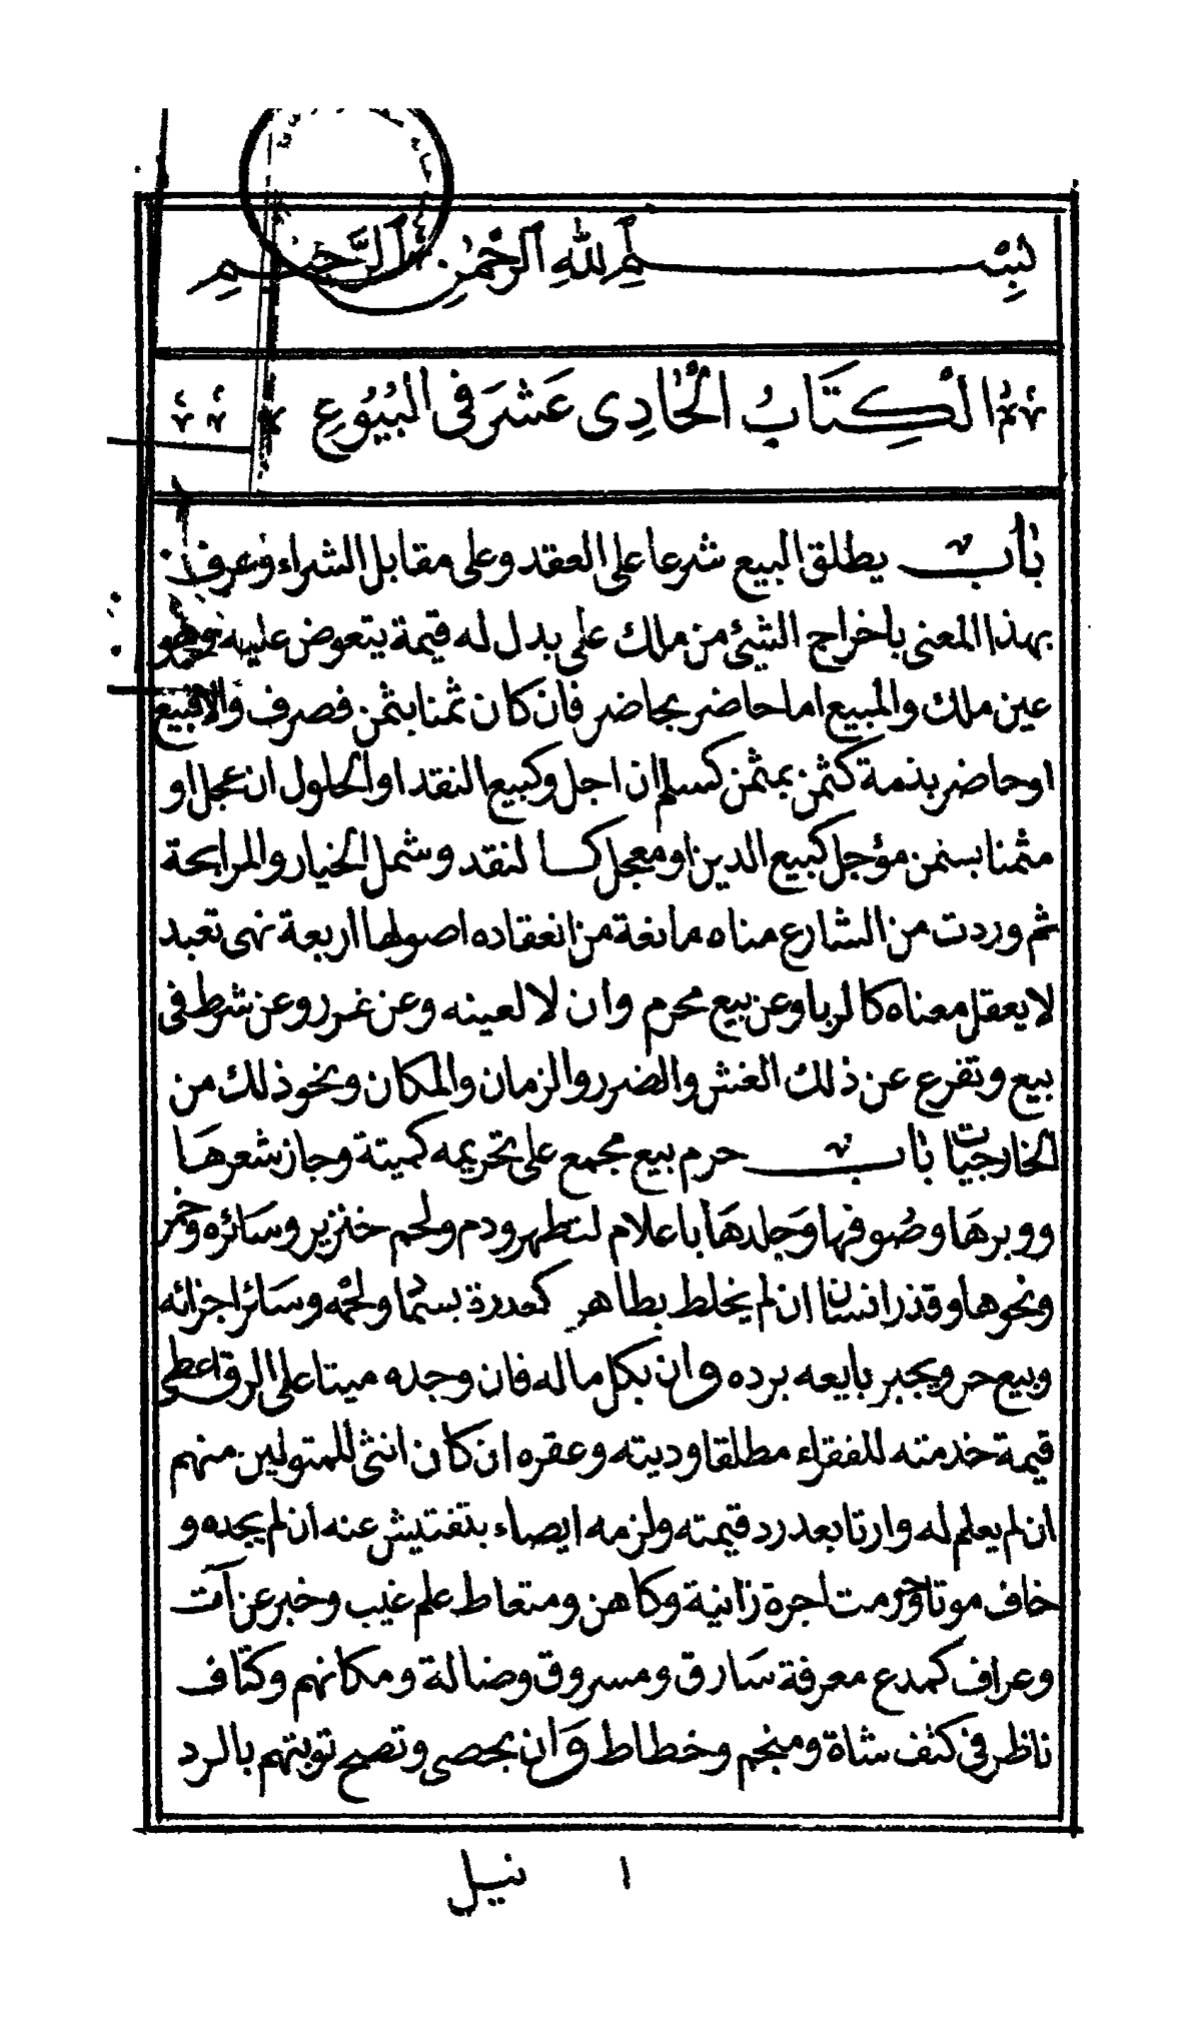 بسم الله الرحمن الرحيم
الْكِتَابُ الْحَادِى عَشَرَ فى البُيُوُعِ
باب يطلق البيع شرعا على العقد وعلى مقابل الشراء وعرف
بهذا المعنى باخراج الشيئ من ملك على بدل له قيمة يتعوض عليه وهو
عين ملك والمبيع اما حاضر بحاضر فان كان ثمنا بثمن فصرف والافبيع
اوحاضر بذمة كثمن بمثمن كسلم ان اجل وكبيع النقد اوالحلول ان عجل او
مثمنا بسنمن مؤجل كبيع الدين اومعجل كا لنقد وشمل الخيار والمرابحة
ثم وردت من الشارع مناه مانعة من انعقاده اصولها اربعة نهى تعبد
لا يعقل معناه كالربا وعن بيع محرم وان لا لعينه وعن غرر وعن شرط فى
بيع وتفرع عن ذلك الغش والضرر والزمان والمكان ونحوذلك من
الخارجيات باب حرم بيع مجمع على تحريمه كميتة وجاز شعرهَا
ووبرهَا وصُوفها وَجلدهَا باعلام لتطهر ودم ولحم خنزير وسَائره وخمر
ونحوها وقذر انسَان ان لم يخلط بطاهر كعدرة بسمَّا ولحمه وسَائر اجزائه
وبيع حر ويجبر بايعه برده وان بكل ماله فان وجده ميتا على الرق اعطى
قيمة خدمته للفقراء مطلقا وديته وعقره ان كان انثى للمتولين منهم
ان لم يعلم له وارثا بعد رد قيمته ولزمه ايصاء بتفتيش عنه ان لم يجده و
خاف موتا وحرمت اجرة زانية وكاهن ومتعاط علم غيب وخبر عن آت
وعراف كمدع معرفة سَارق ومسروق وضالة ومكانهم وكتاف
ناظر فى كتف شاة ومنجم وخطاط وَان بحصى وتصح توبتهم بالرد
١ نيل